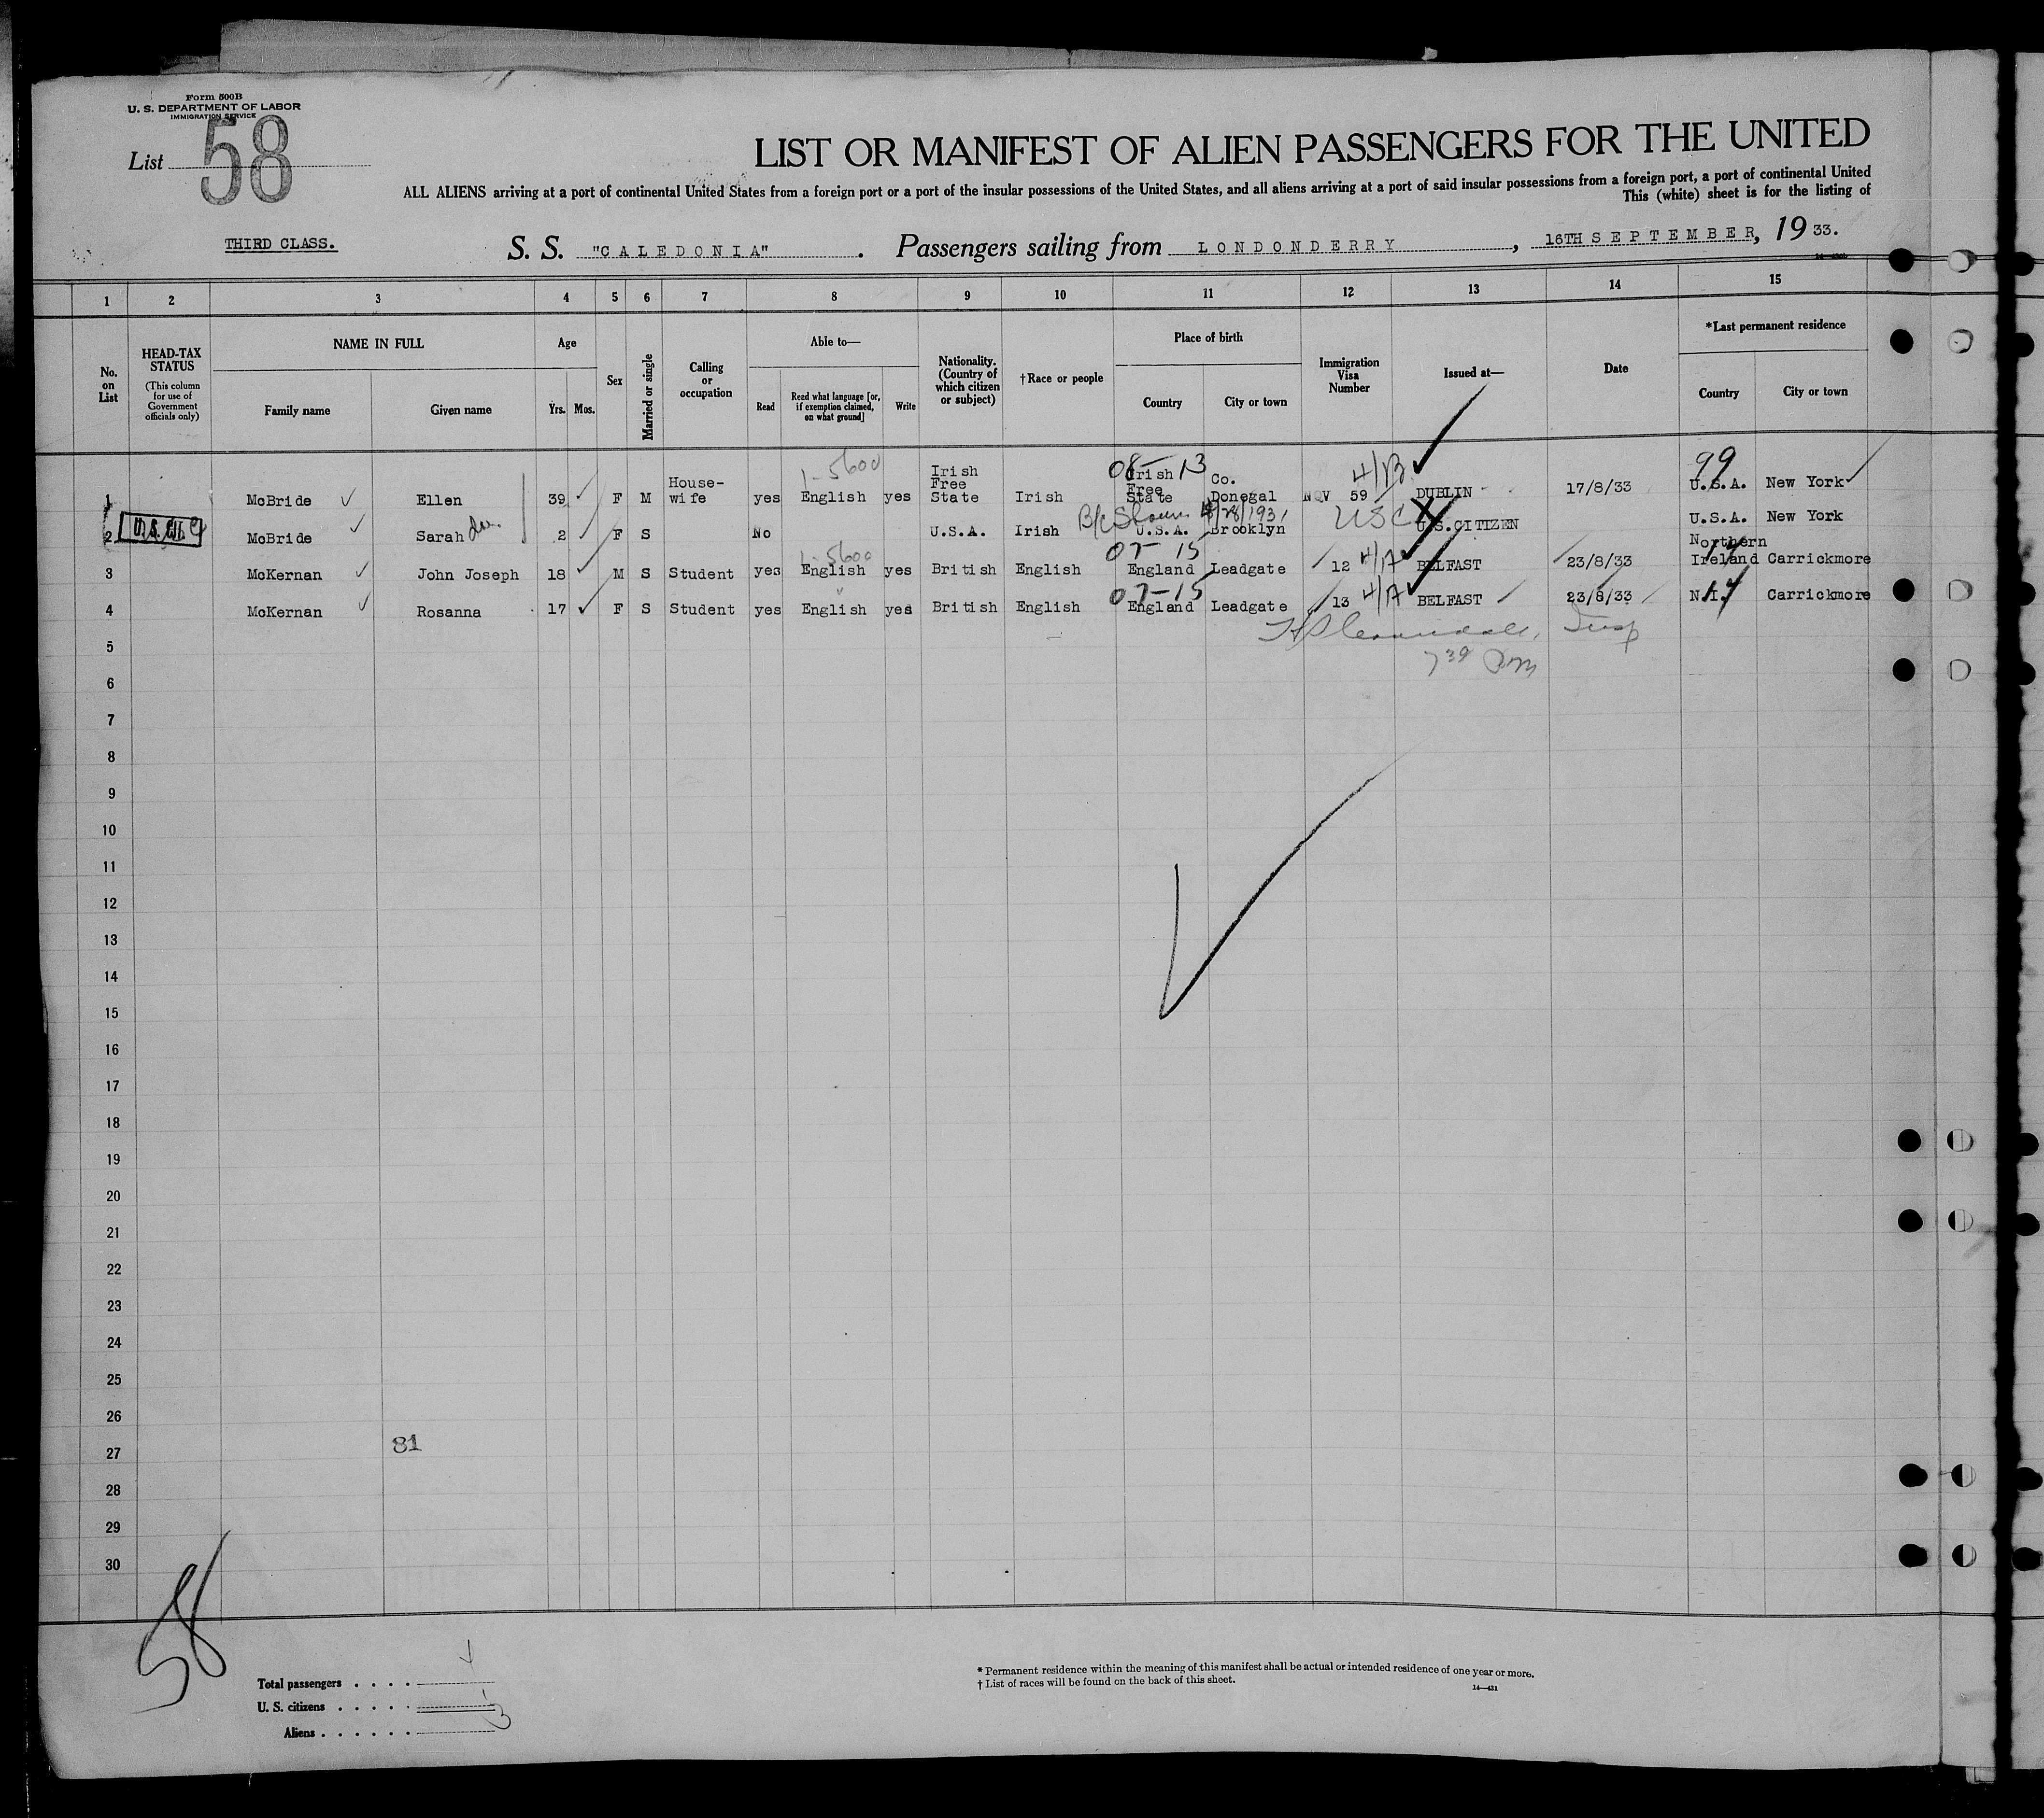 Form 500B
U. S. DEPARTMENT OF LABOR
IMMIGRATION SERVICE
List 58
LIST OR MANIFEST OF ALIEN PASSENGERS FOR THE UNITED
ALL ALIENS arriving at a port of continental United States from a foreign port or a port of the insular possessions of the United States, and all aliens arriving at a port of said insular possessions from a foreign port, a port of continental United
This (white) sheet is for the listing of
THIRD CLASS. S. S. "CALEDONIA". Passengers sailing from LONDONDERRY, 16TH SEPTEMBER, 1933.
1 2 3 4 5 6 7 8 9 10 11 12 13 14 15
No. on List
HEAD-TAX STATUS (This column for use of Government officials only)
NAME IN FULL Family name Given name
Age Yrs. Mos.
Sex
Married or single
Calling or occupation
Able to— Read Read what language [or, if exemption claimed, on what ground] Write
Nationality. (Country of which citizen or subject)
†Race or people
Place of birth Country City or town
Immigration Visa Number
Issued at—
Date
*Last permanent residence Country City or town
1 McBride Ellen 39 F M House-wife yes English yes Irish Free State Irish Irish Free State Co. Donegal NQV 59 DUBLIN 17/8/33 U.S.A. New York
1-5600 08-13 4/B 99
2 McBride Sarah 2 F S No U.S.A. Irish U.S.A. Brooklyn U.S.CITIZEN U.S.A. New York
B/C Shown 8/28/1931 USC
3 McKernan John Joseph 18 M S Student yes English yes British English England Leadgate 12 BELFAST 23/8/33 Northern Ireland Carrickmore
1-5600 07-15 4/A 14
4 McKernan Rosanna 17 F S Student yes English yes British English England Leadgate 13 BELFAST 23/8/33 N.I. Carrickmore
07-15 4/A 14
Insp
7 30 Pm
5
6
7
8
9
10
11
12
13
14
15
16
17
18
19
20
21
22
23
24
25
26
27
81
28
29
30
58
Total passengers . . . .
U. S. citizens . . . . .
Aliens . . . . . . 3
* Permanent residence within the meaning of this manifest shall be actual or intended residence of one year or more.
† List of races will be found on the back of this sheet.
14—431